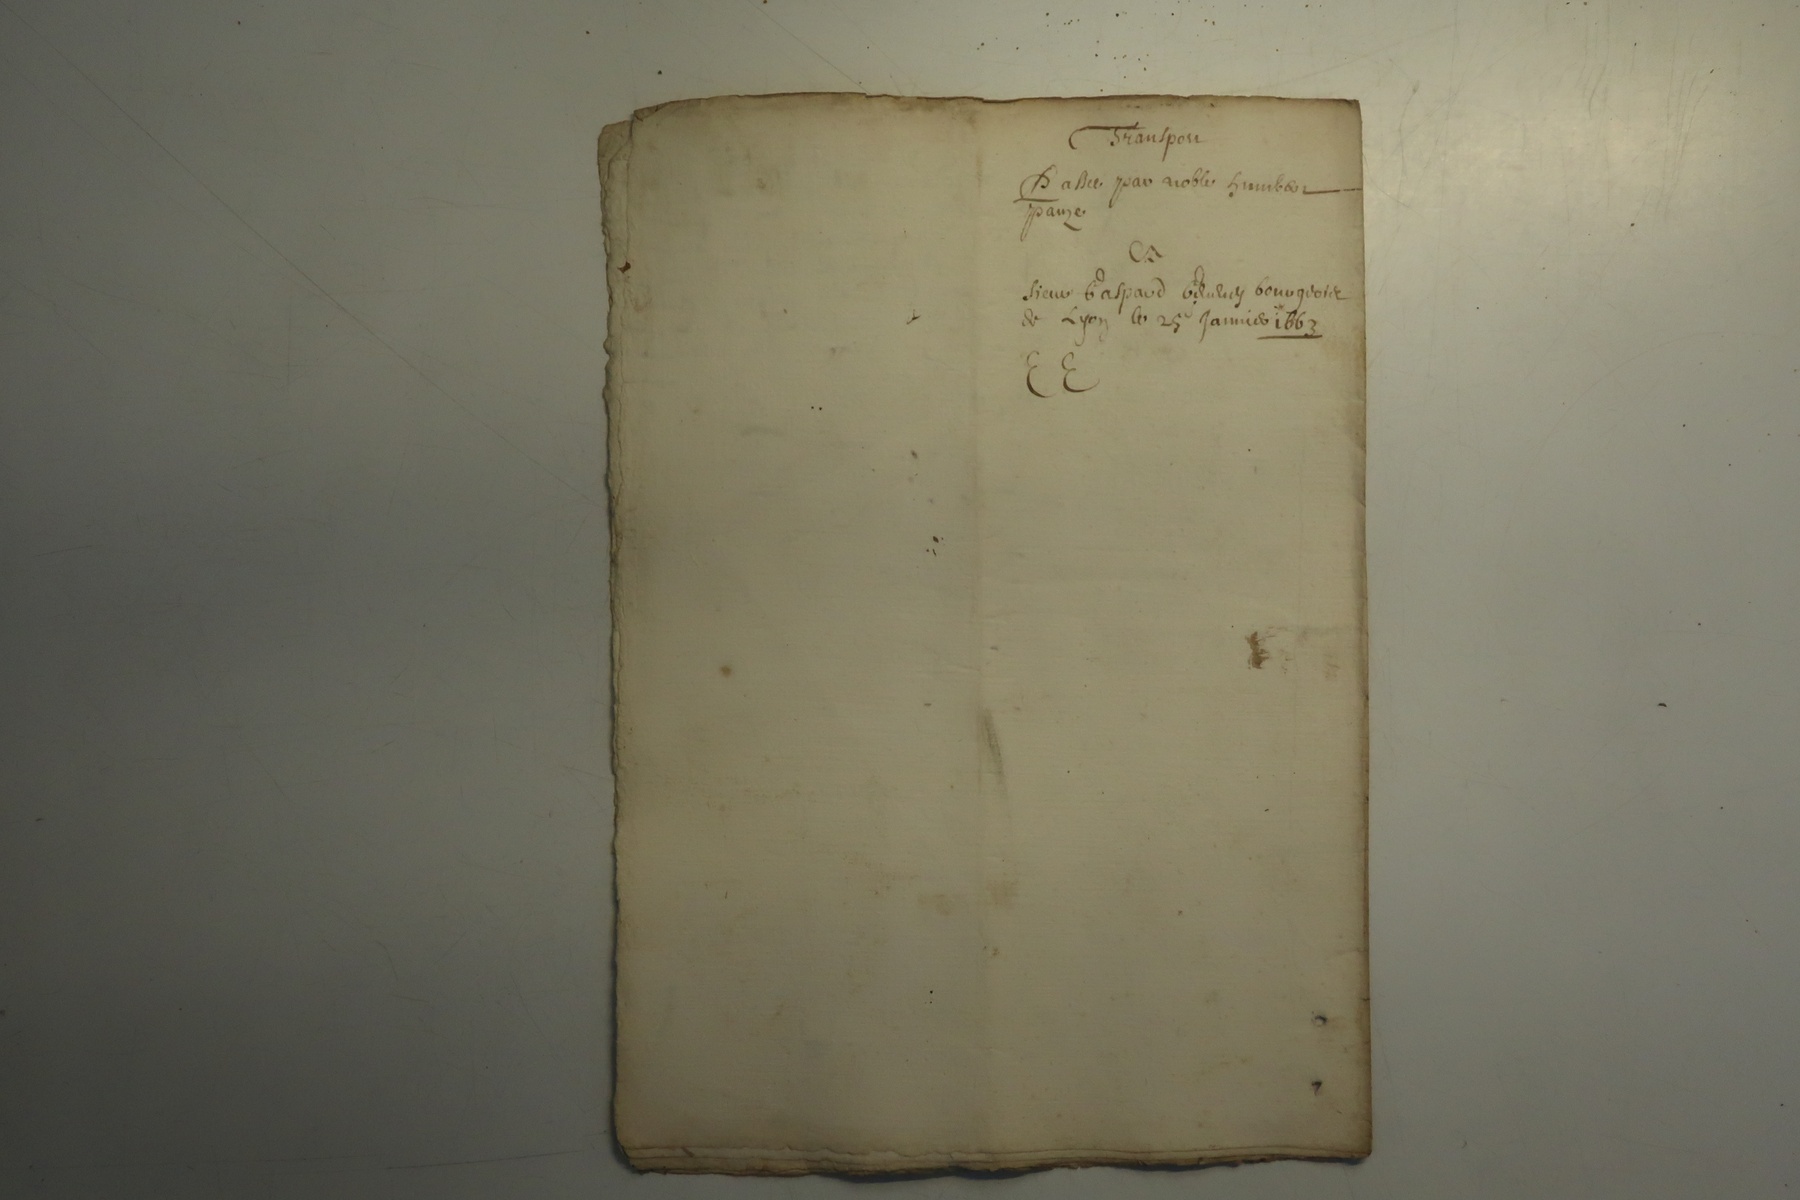 Transport
Passe par noble humbert
panze
A
sieur Gaspard bourgeois
de Lyon le 25 Janvier 1663
EE